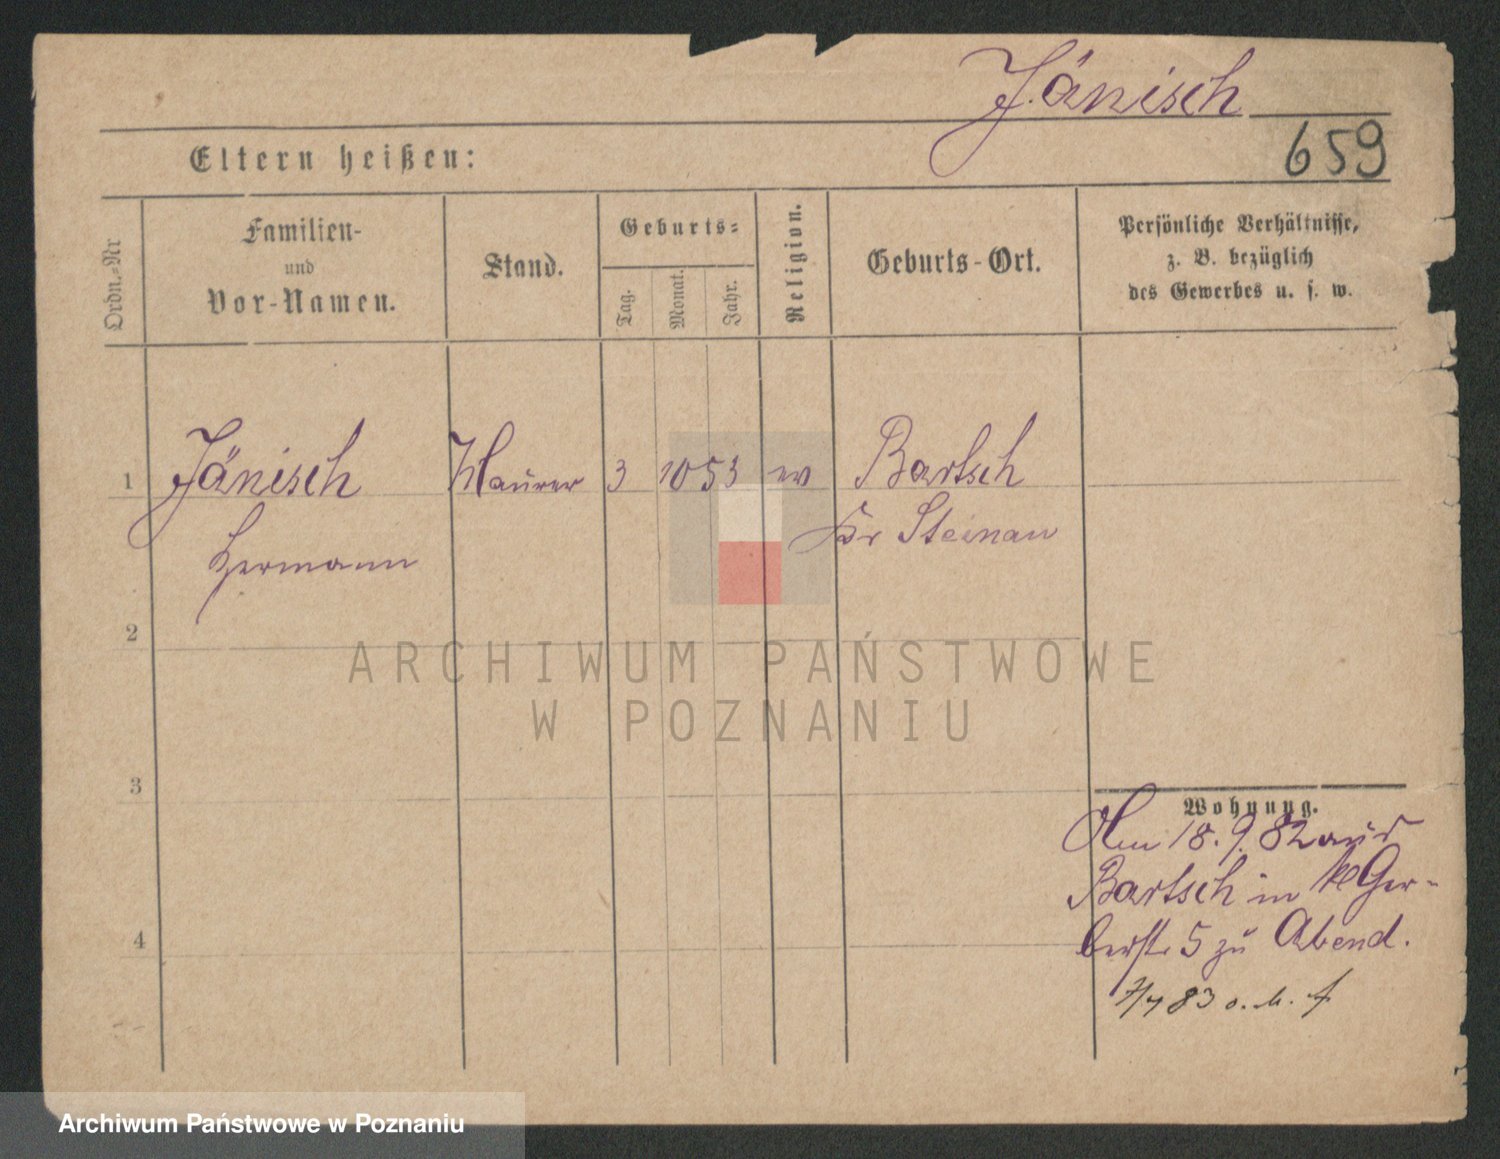 Jänisch
659
Eltern heißen:
Ordn.-Nr
Familien-
und
Vor-Namen.
Stand.
Geburts-
Tag.
Monat.
Jahr.
Religion.
Geburts-Ort.
Persönliche Verhältnisse,
z. B. bezüglich
des Gewerbes u. s. w.
1 Jänisch Maurer 3 10 53 ev Bartsch
Hermann Kr Steinau
2
ARCHIWUM PAŃSTWOWE
W POZNANIU
3
Wohnung.
Am 18. 9. 82 aus
Bartsch in kl Ger-
berstr 5 zu Abend.
4
83 o.
Archiwum Państwowe w Poznaniu